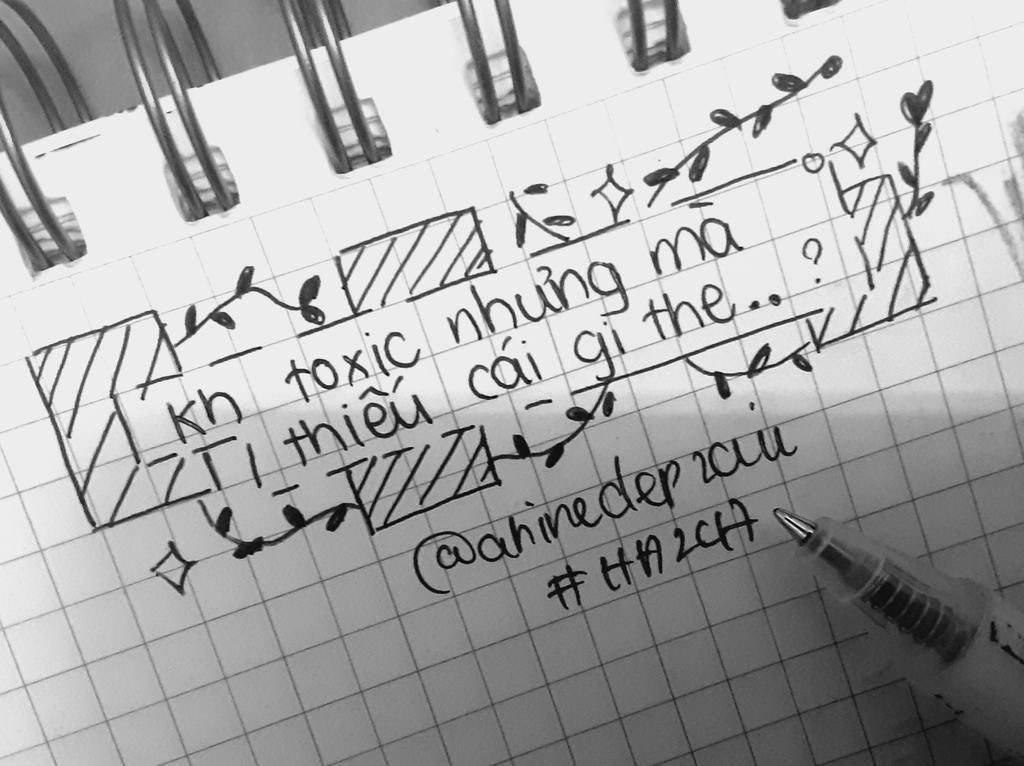 kh toxic nhưng mà
thiếu cái gì thế...?
@ahinedepzaiii
#HA2CHA